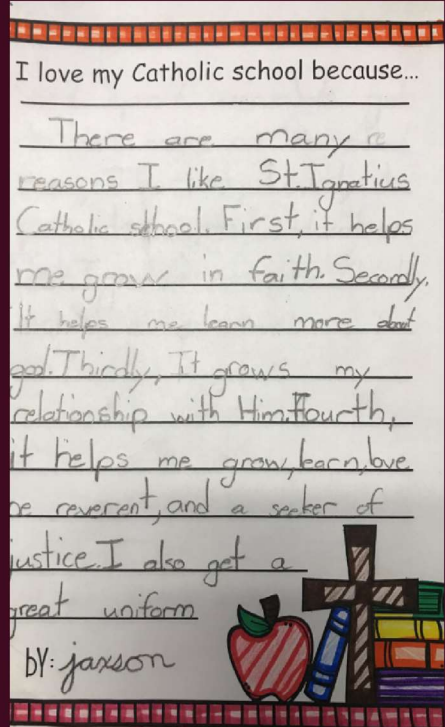 I love my Catholic school because...
There are many re
reasons I like St. Ignatius
Catholic school. First, it helps
me grow in faith. Secondly,
It helps me learn more about
god. Thirdly, It grows my
relationship with Him. Fourth,
it helps me grow, learn, love
be reverent, and a seeker of
justice. I also get a
great uniform
by: jaxson